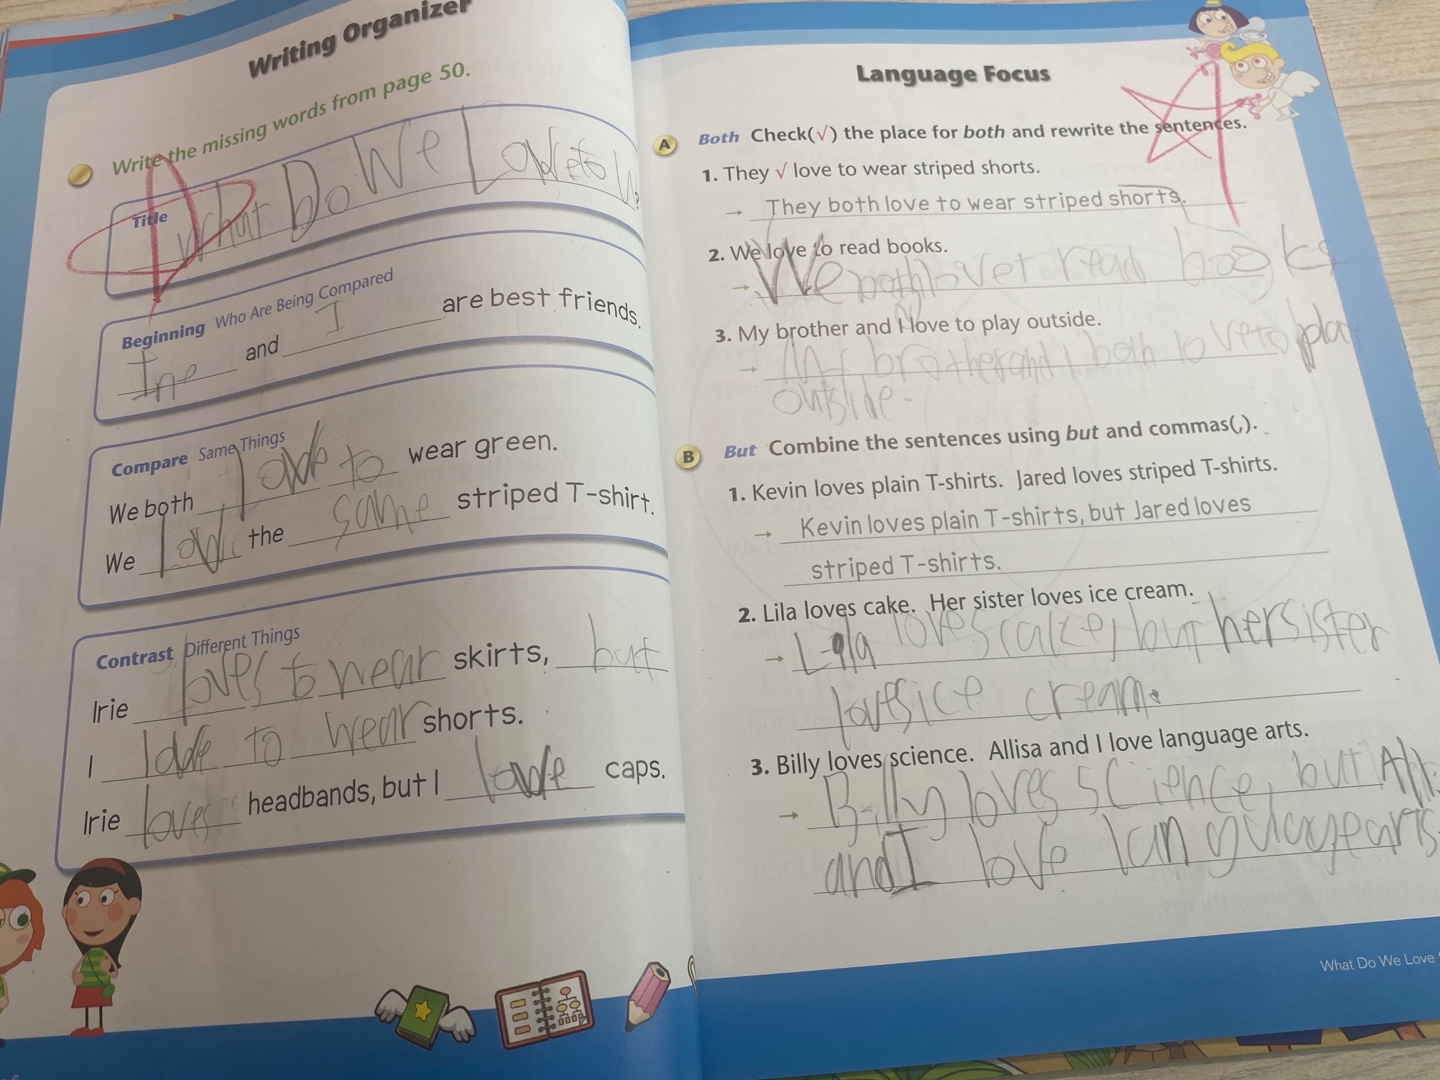 Writing Organizer
Write the missing words from page 50.
Title
What Do We Love to
Beginning Who Are Being Compared
Irie and I are best friends.
Compare Same Things
We both love to wear green.
We love the same striped T-shirt.
Contrast Different Things
Irie loves to wear skirts, but
I love to wear shorts.
Irie loves headbands, but I love caps.
Language Focus
A Both Check(√) the place for both and rewrite the sentences.
1. They √ love to wear striped shorts.
→ They both love to wear striped shorts.
2. We love to read books.
→ We both love t read books
3. My brother and I love to play outside.
→ My brother and I both love to pla
outside.
B But Combine the sentences using but and commas(,).
1. Kevin loves plain T-shirts. Jared loves striped T-shirts.
→ Kevin loves plain T-shirts, but Jared loves
striped T-shirts.
2. Lila loves cake. Her sister loves ice cream.
→ Lila loves cake, but her sister
loves ice cream.
3. Billy loves science. Allisa and I love language arts.
→ Billy loves science, but All
and I love languay arts
What Do We Love